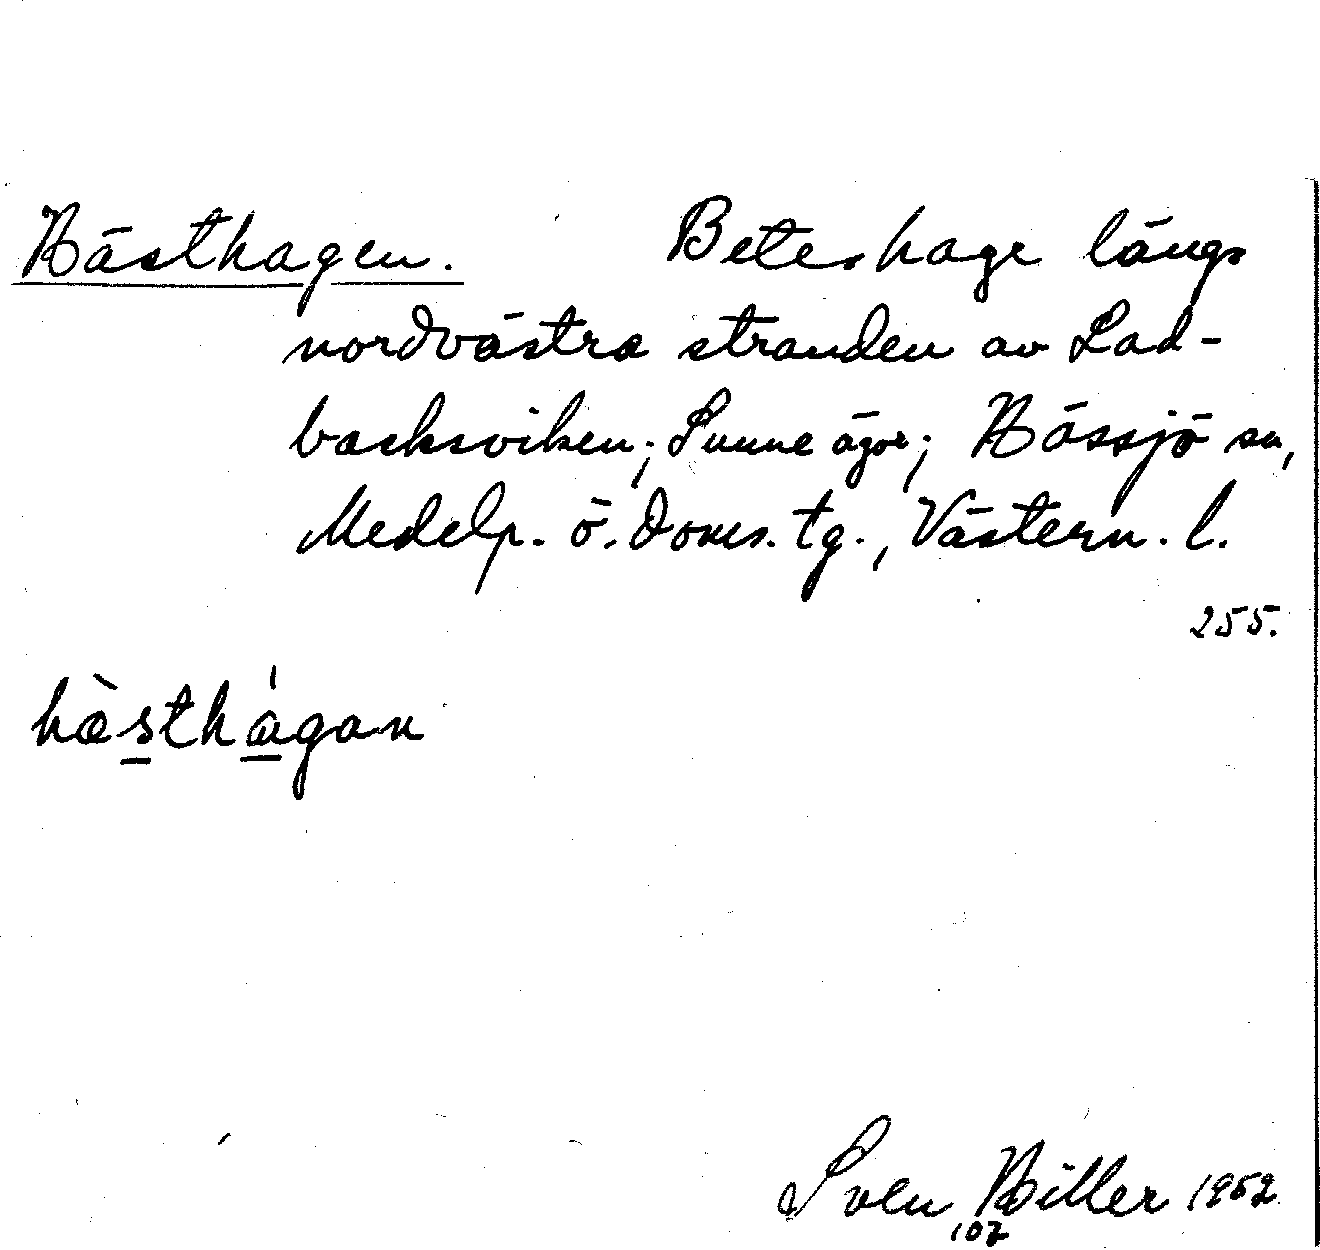 Hästhagen. Beteshage längs
nordvästra stranden av Lad-
backsviken; Sunne ägor; Hässjö sn,
Medelp. ö. doms. tg., Västern. l.
255.
hæ̀sthágan
Sven Hiller 1952
107